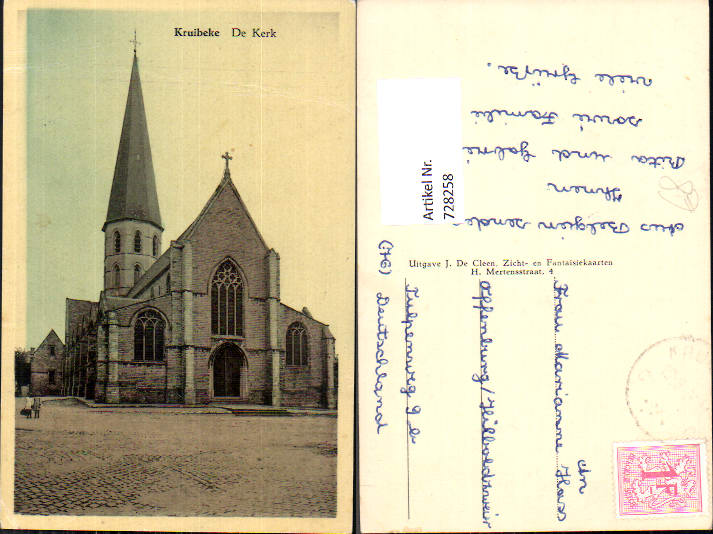 Kruibeke De Kerk
Aus Belgien sendet
Ihnen
Rita und Gabrié
sowie Familie
viele Grüße.
Artikel Nr.
728258
Uitgave J. De Cleen. Zicht- en Fantaisiekaarten
H. Mertensstraat, 4
An
Frau Marianne Hass
Offenburg/Hildboltsweier
Tulpenweg 9 b
(76) Deutschland
1F